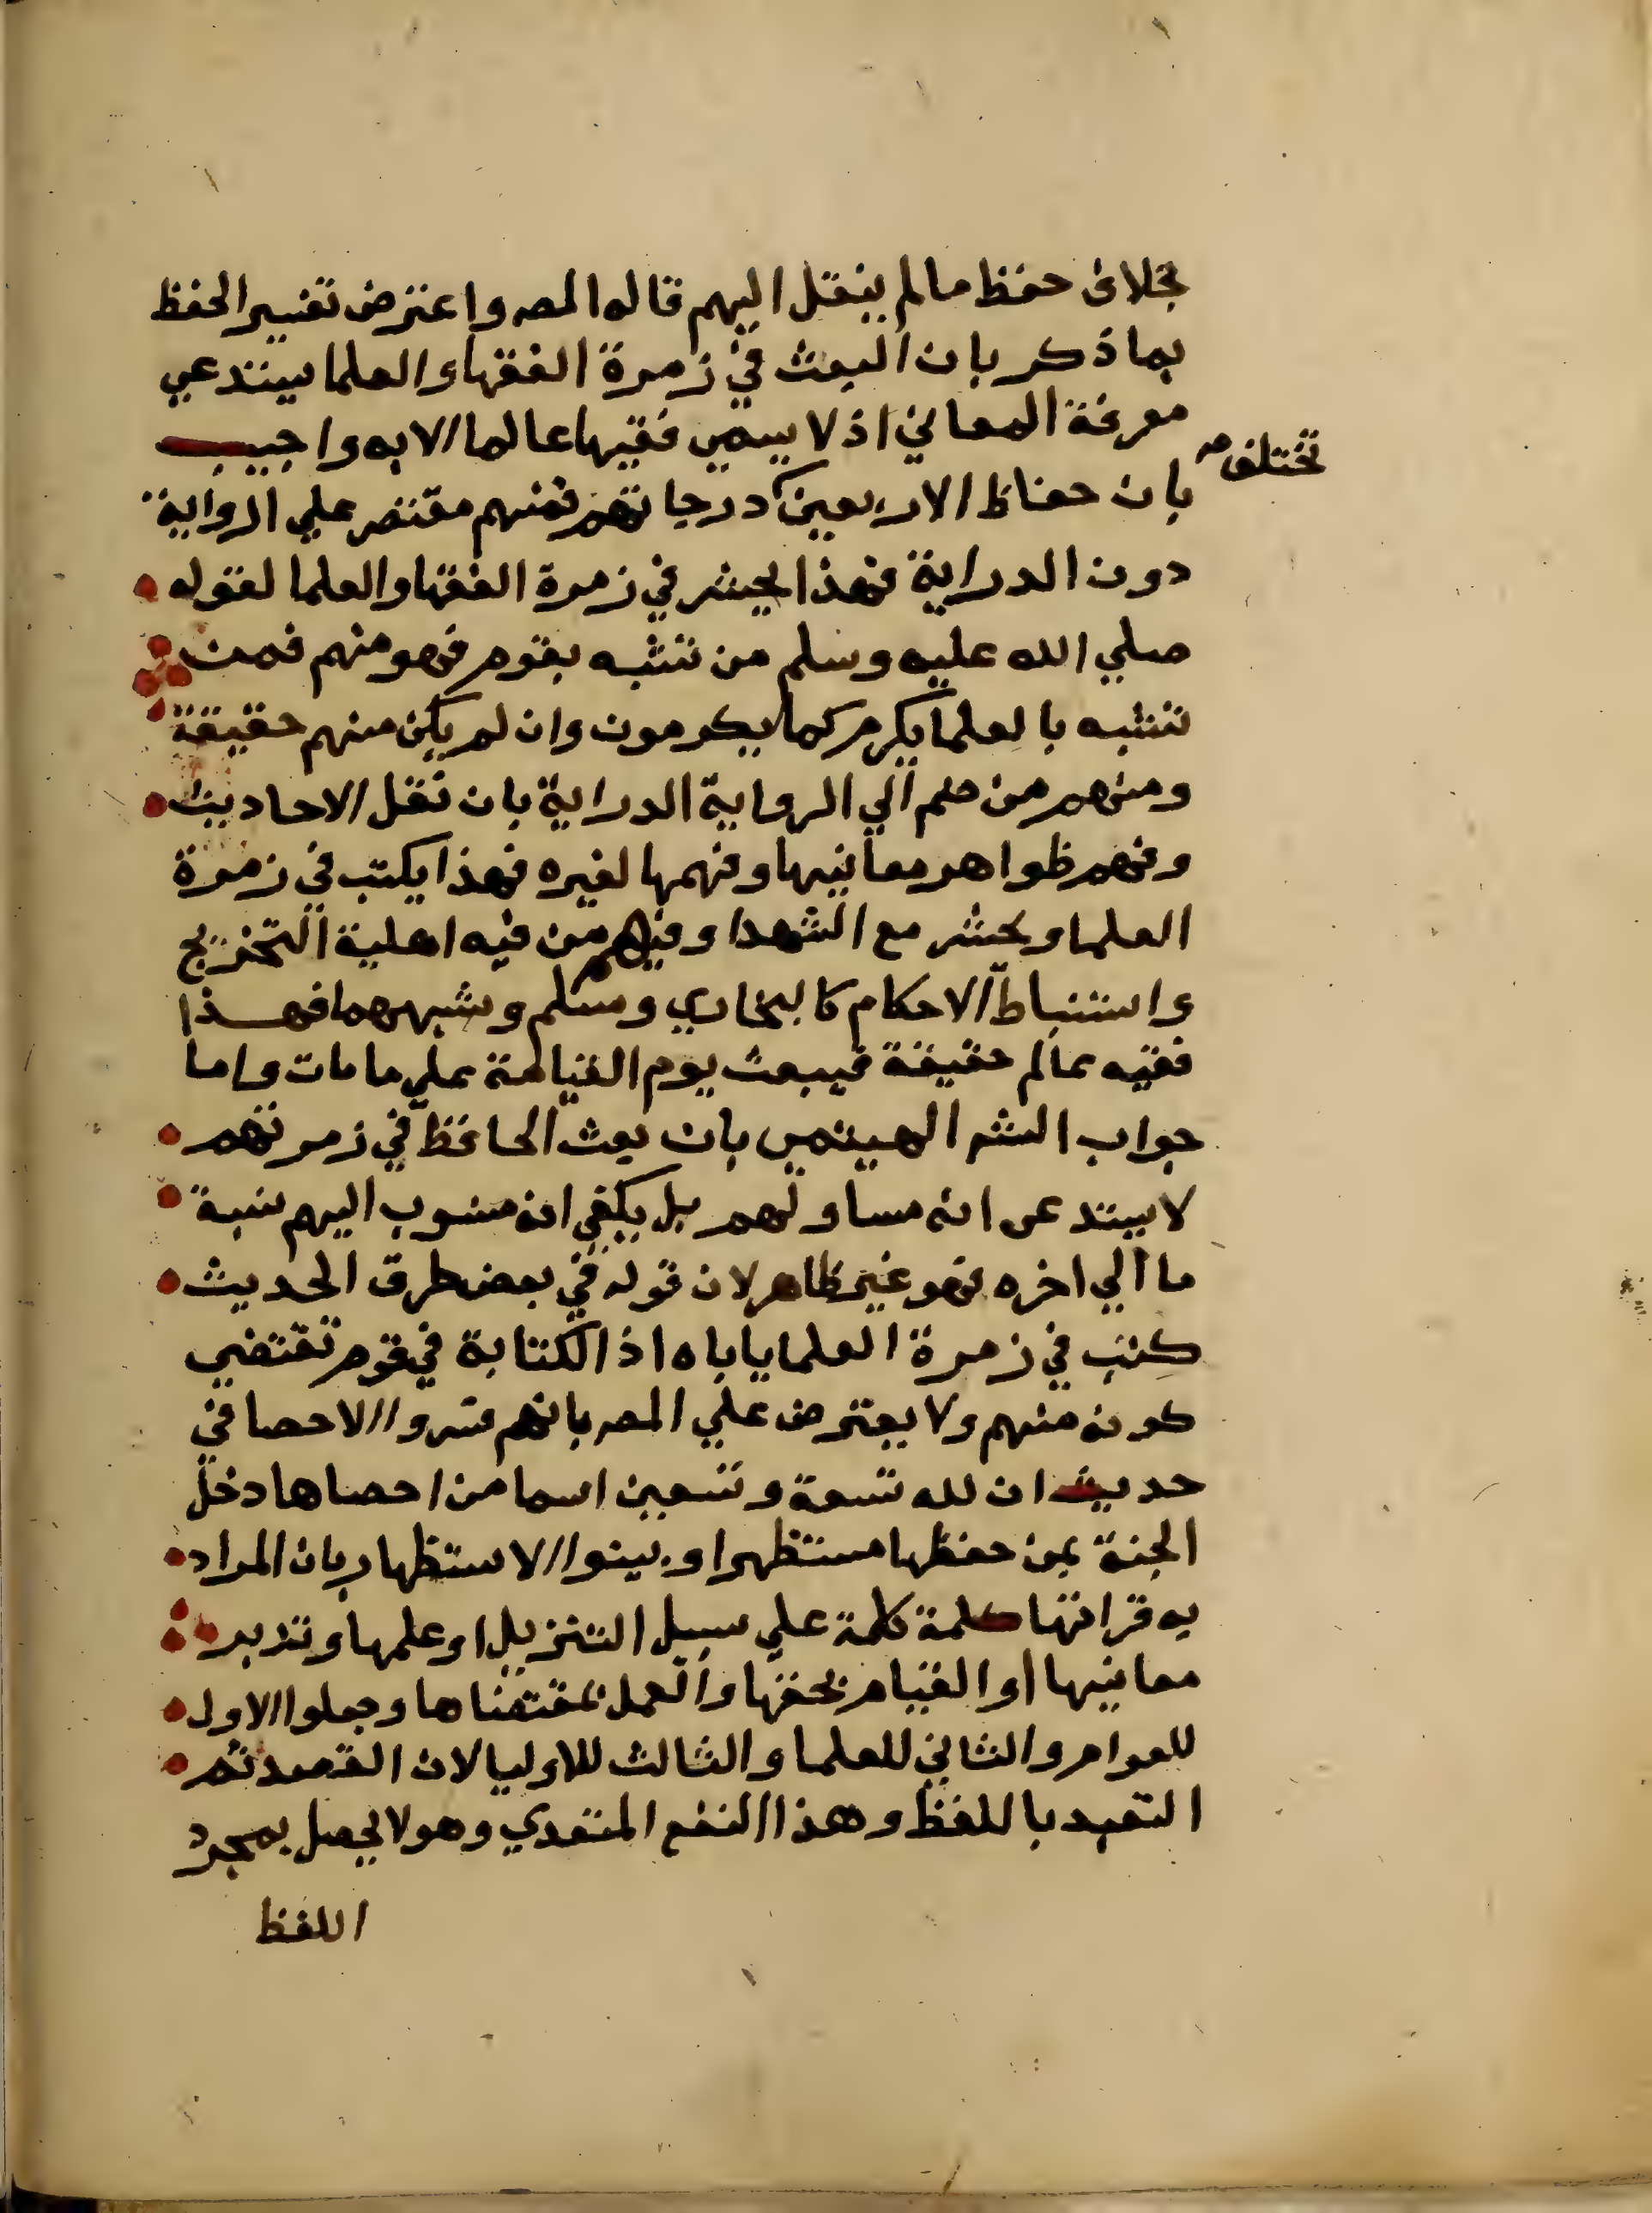 بخلاف حفظ مالم ينقل اليهم قاله المصـ واعترض تفسير الحفظ
بما ذكر بان البعث في زمرة الفقهاء والعلما يستدعي
معرفة المعاني اذ لا يسمي فقيها عالما الا به واجيب
تختلف صح
بان حفاظ الاربعين درجاتهم فمنهم مقتصر علي الرواية
دون الدراية فهذا يحشر في زمرة الفقها والعلما لقوله
صلي الله عليه وسلم من تشبه بقوم فهو منهم فمن
تشبه بالعلما يكرم كما يكرمون وان لم يكن منهم حقيقة
ومنهم من ضم الي الرواية الدراية بان نقل الاحاديث
وفهم ظواهر معانيها وفهمها لغيره فهذا يكتب في زمرة
العلما ويحشر مع الشهدا وفيهم من فيه اهلية التخريج
واستنباط الاحكام كالبخاري ومسلم وشبههما فهذا
فقيه عالم حقيقة فيبعث يوم القيامة علي ما مات واما
جواب الشر الهيتمي بان بعث الحافظ في زمرتهم
لا يستدعي انه مساو لهم بل يكفي انه منسوب اليهم نسبة
ما الي اخره فهو غير ظاهر لان قوله في بعض طرق الحديث
كتب في زمرة العلما ياباه اذ الكتابة في قوم تقتضي
كونه منهم ولا يعترض علي المصـ بانهم فسروا الاحصا في
حديث ان لله تسعة وتسعين اسما من احصاها دخل
الجنة بمن حفظها مستظهرا وبينوا الاستظهار بان المراد
به قراتها كلمة كلمة علي سبيل التنزيل او علمها وتدبر
معانيها او القيام بحقها والعمل بمقتضاها وجعلوا الاول
للعوام والثاني للعلما والثالث للاوليا لان القصد ثم
التعبد باللفظ وهذا النفع المتعدي وهو لا يحصل بمجرد
اللفظ